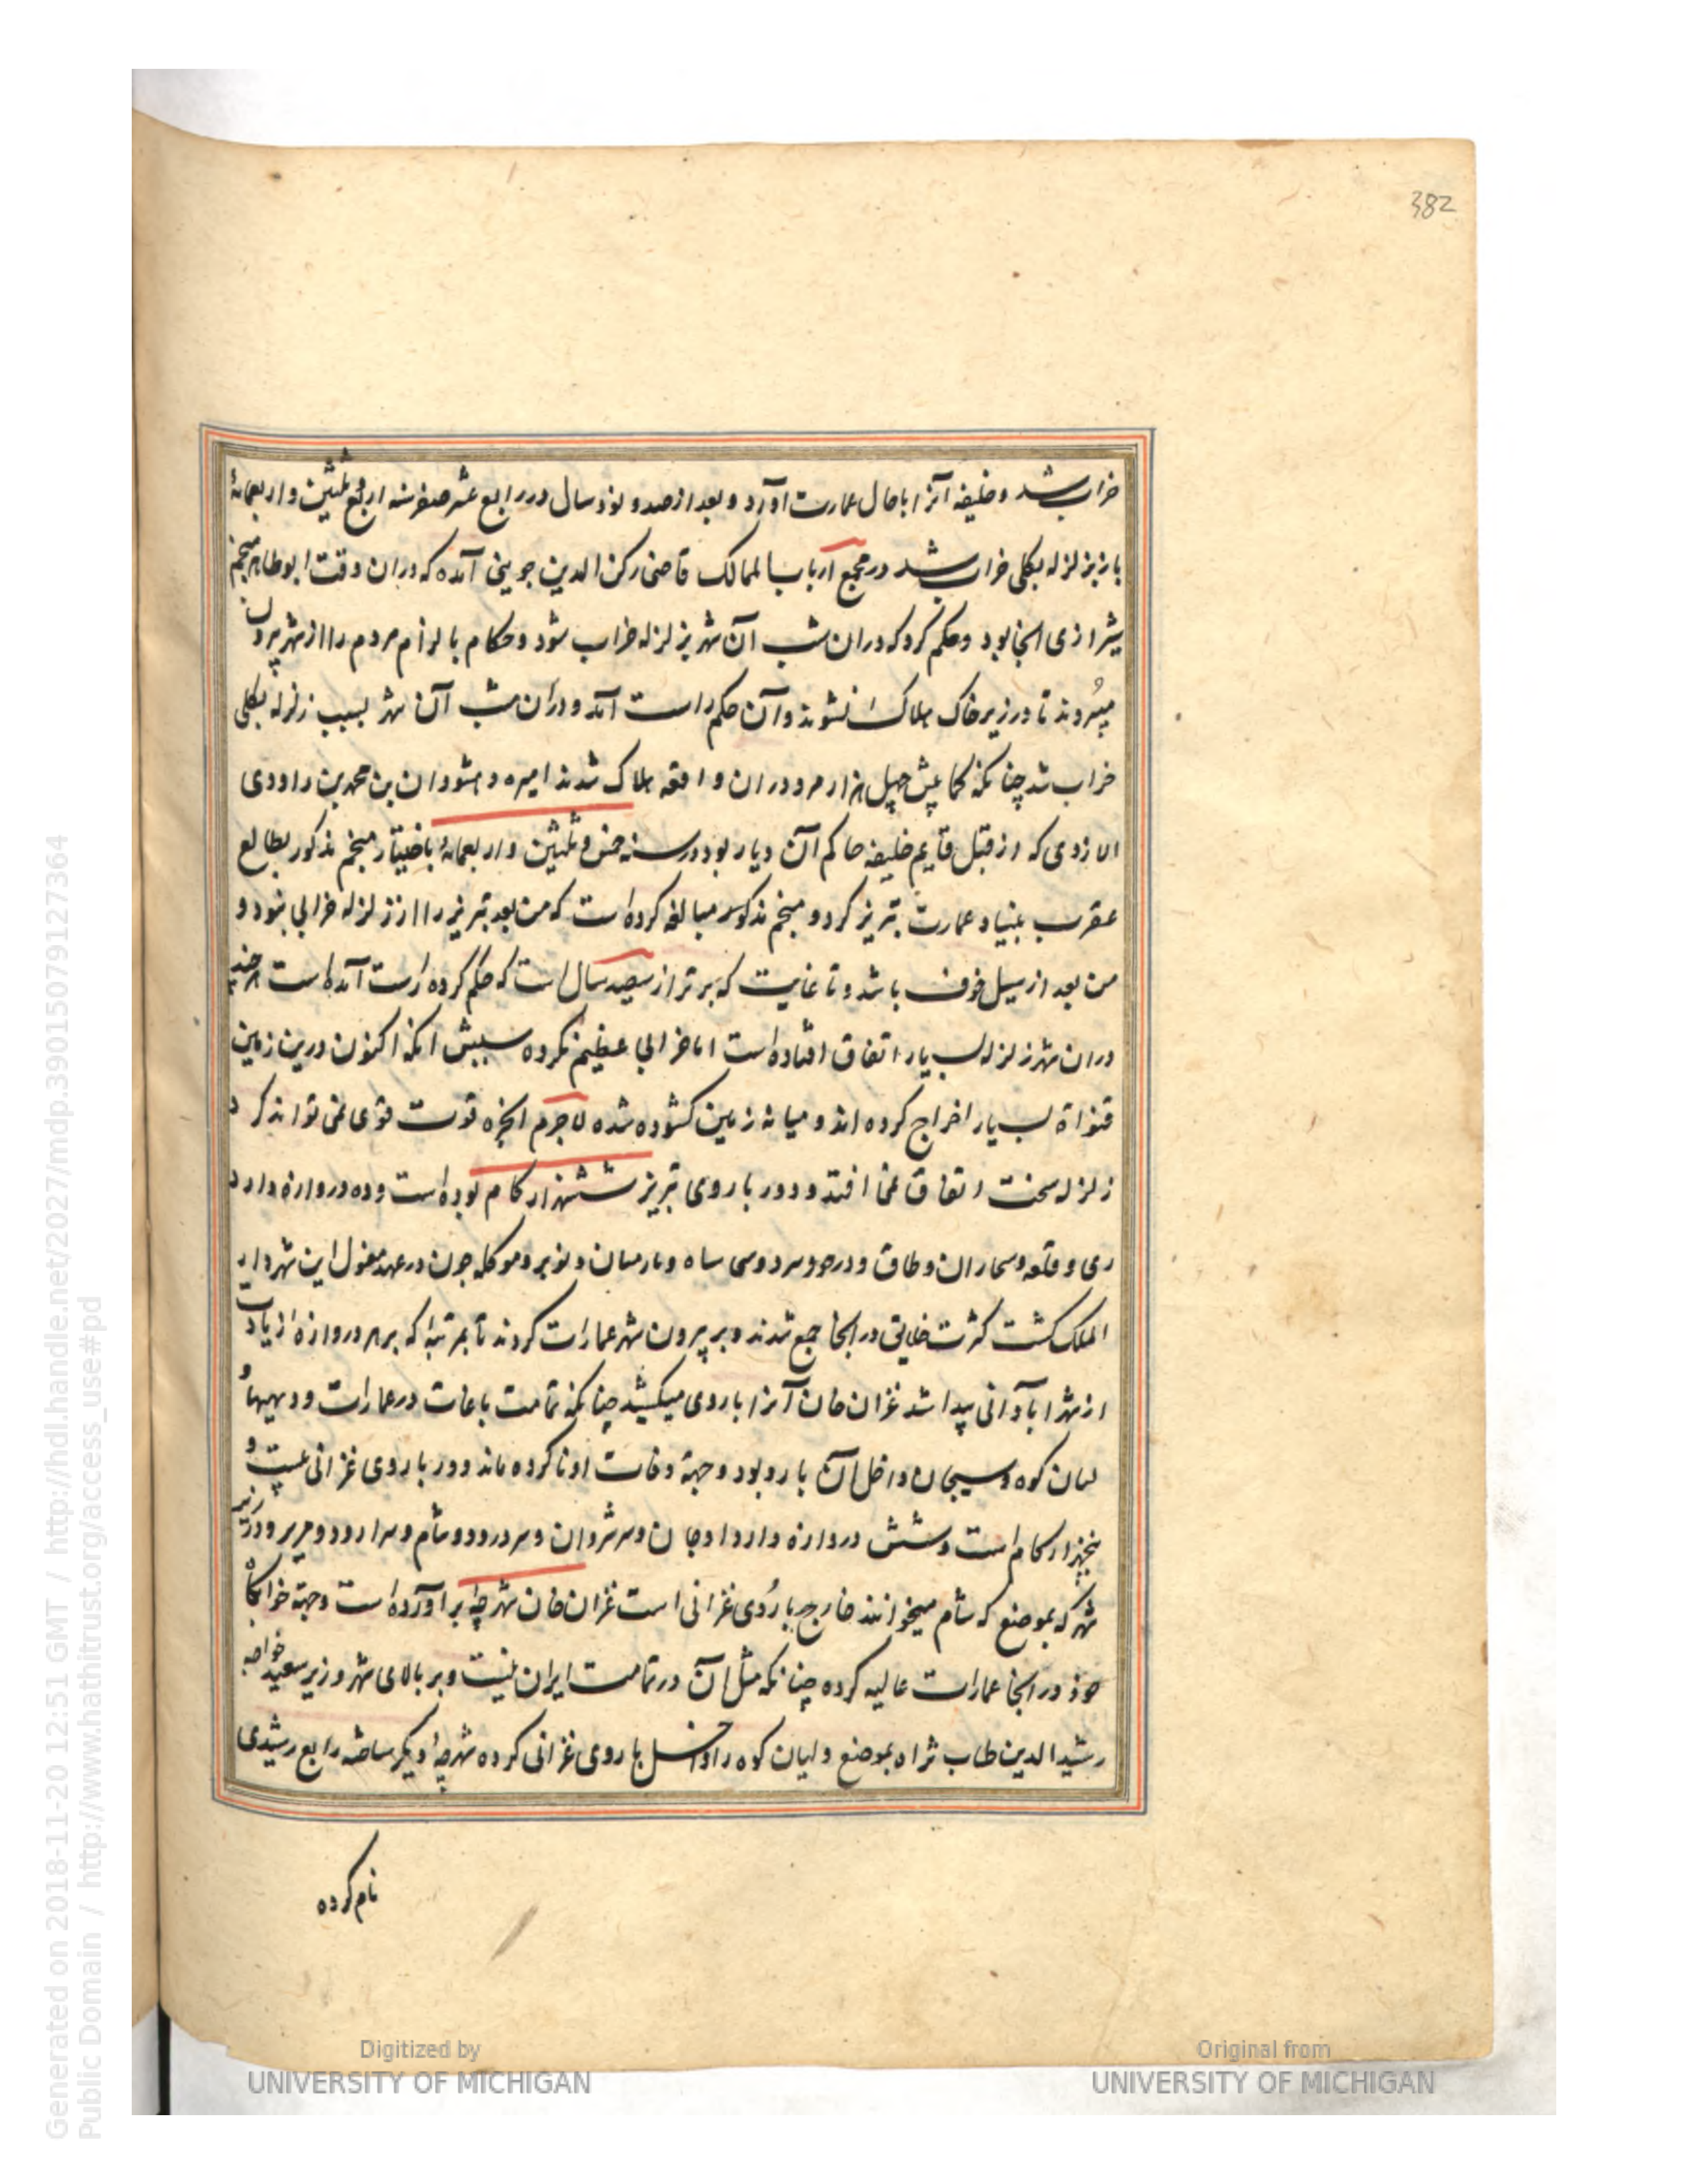 382
خراب شد و خلیفه آنرا باحال عمارت آورد و بعد از صد و نود سال در رابع عشر صفر سنه اربع و ثلثین و اربعمائهٔ
باز بزلزله بکلی خراب شد در مجمع ارباب الممالک قاضی رکن الدین جوینی آمده که دران وقت ابو طاهر منجم
شیرازی انجا بود و حکم کرد که دران شب آن شهر بزلزله خراب شود و حکام بالزام مردم را از شهر بیرون
میبردند تا در زیر خاک هلاک نشوند و آن حکم راست آمد و دران شب آن شهر بسبب زلزله بکلی
خراب شد چنانکه کما بیش چهل هزار مرد دران واقعه هلاک شدند امیره وهشودان بن محمد بن راودی
الازدی که از قبل قایم خلیفه حاکم آن دیار بود در سنه خمس و ثلثین و اربعمائه باختیار منجم مذکور بطالع
عقرب بنیاد عمارت تبریز کرد و منجم مذکور مبالغه کرده است که من بعد تبریز را از زلزله خرابی نبود و
من بعد از سیل خوف باشد و تا غایت که برتر از سیصد سال است که حکم کرده راست آمده است هر چند
دران شهر زلزله بسیار اتفاق افتاده است اما خرابی عظیم نکرده سببش انکه اکنون درین زمین
قنواة بسیار اخراج کرده اند و میانه زمین کشوده شده لاجرم ابخره قوت قوی نمی تواند کرد
زلزله سخت اتفاق نمی افتد و دور باروی تبریز ششهزار کام بوده است و ده دروازه دارد
ری و قلعه و سحاران و طاق و درحو و سرد و دسی ساه و نارمیان و نوبر و موکله چون در عهد مغول این شهر دار
الملک کشت کثرت خلایق در انجا جمع شدند و بر بیرون شهر عمارات کردند تا بمرتبهٔ که بر هر دروازه زیادت
از شهر ابادانی پیدا شد غزان خان آنرا باروی میکشید چنانکه تمامت باغات در عمارات و دیهها
لیان کوه و سیجان داخل آن بارو بود و جهة وفات او ناکرده ماند و دور باروی غزانی بیست و
پنجهزار کام است و شش دروازه دارد اوجان و سر شروان و سر درود و شام و سرارود و تبریز و در زیر
شهر که بموضع که شام میخوانند خارج باروی غزانی است غزان خان شهرچهٔ بر آورده است و جهة خوابکاه
خود در انجا عمارات عالیه کرده چنانکه مثل آن در تمامت ایران نیست و بر بالای شهر وزیر سعید خواجه
رشید الدین طاب ثراه بموضع ولیان کوه را داخل باروی غزانی کرده شهرچهٔ دیکر ساخته رابع رشیدی
نام کرده
Generated on 2018-11-20 12:51 GMT / http://hdl.handle.net/2027/mdp.39015079127364
Public Domain / http://www.hathitrust.org/access_use#pd
Digitized by
UNIVERSITY OF MICHIGAN
Original from
UNIVERSITY OF MICHIGAN